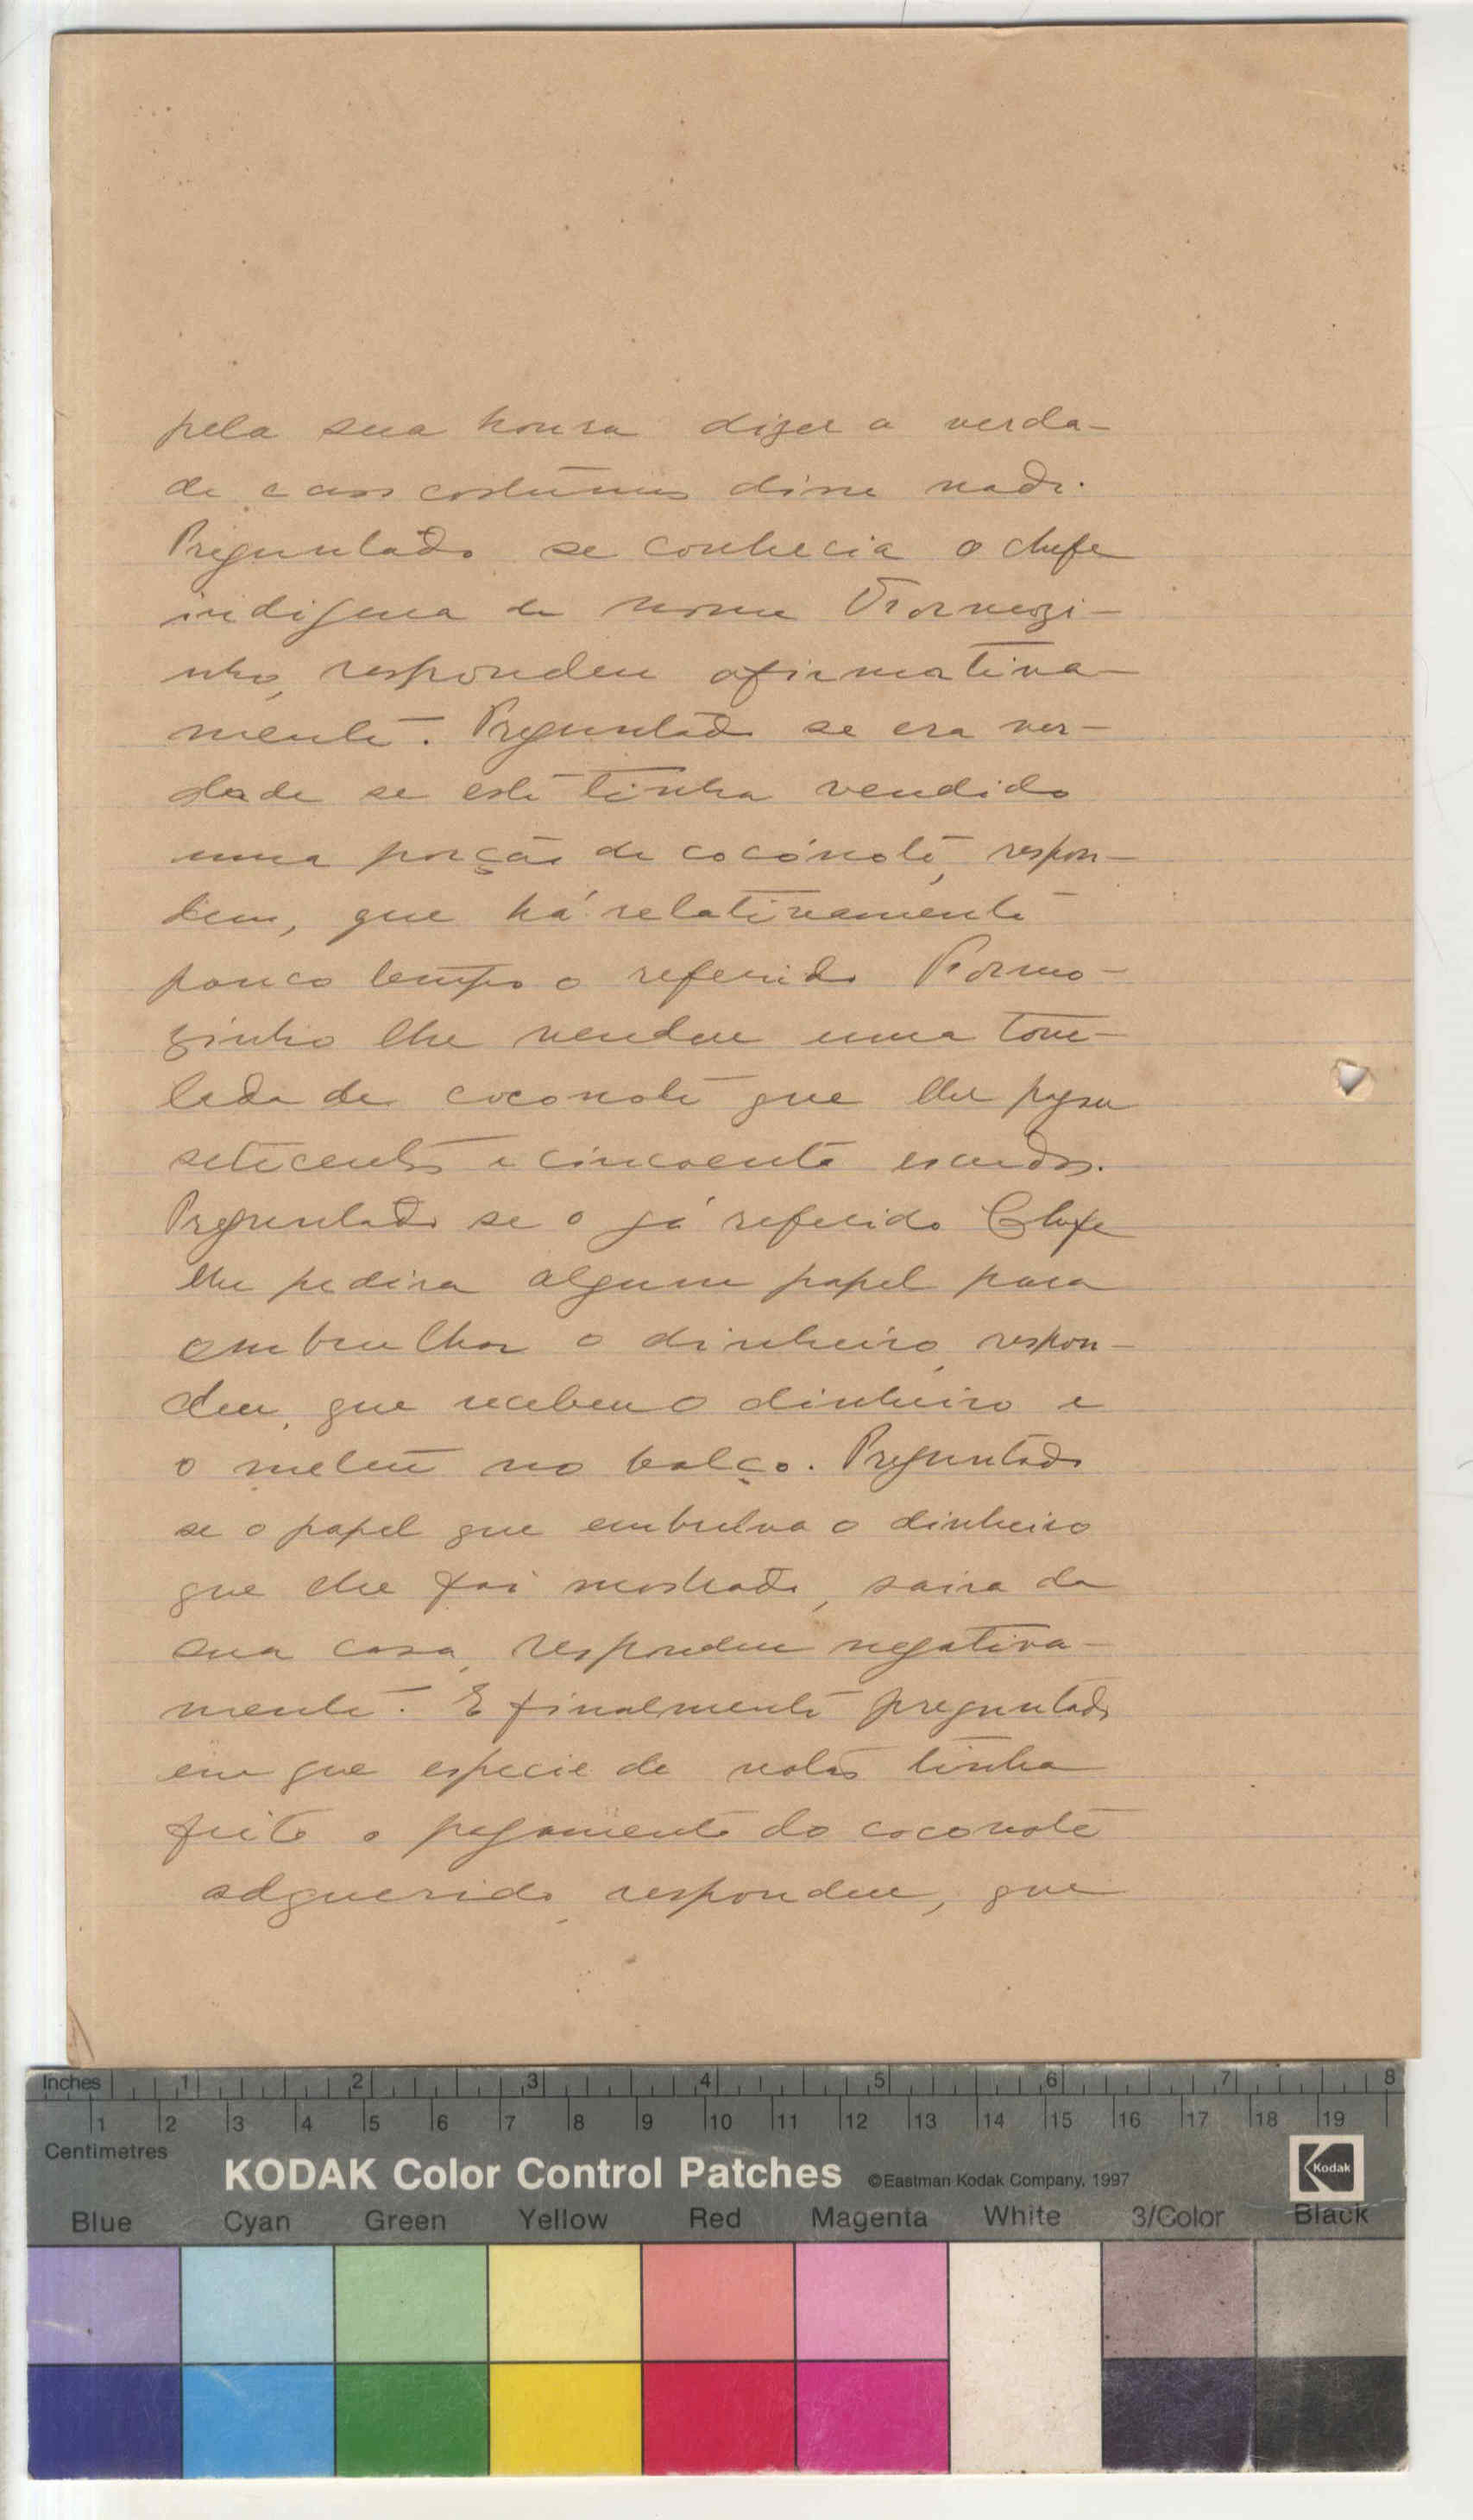 pela sua honra dizer a verda-
de e aos costumes disse nada.
Preguntado se conhecia o chefe
indigena de nome
nho, respondeu afirmativa-
mente. Preguntado se era ver-
dade se este tinha vendido
uma porção de cocónote, respon-
deu, que há relativamente
pouco tempo o referido Formo-
zinho lhe vendeu uma tone-
lada de coconote que lhe pagou
setecentos e cincoenta escudos.
Preguntado se o já referido Chefe
lhe pedira algum papel para
embrulhar o dinheiro, respon-
deu, que recebeu o dinheiro e
o meteu no bolço. Preguntado
se o papel que embrulva o dinheiro
que lhe foi mostrado, saira da
sua casa, respondeu negativa-
mente. E finalmente preguntado
em que especie de notas tinha
feito o pagamento do coconote
adquerido, respondeu, que
Inches 1 2 3 4 5 6 7 8
1 2 3 4 5 6 7 8 9 10 11 12 13 14 15 16 17 18 19
Centimetres
KODAK Color Control Patches ©Eastman Kodak Company, 1997 Kodak
Blue Cyan Green Yellow Red Magenta White 3/Color Black